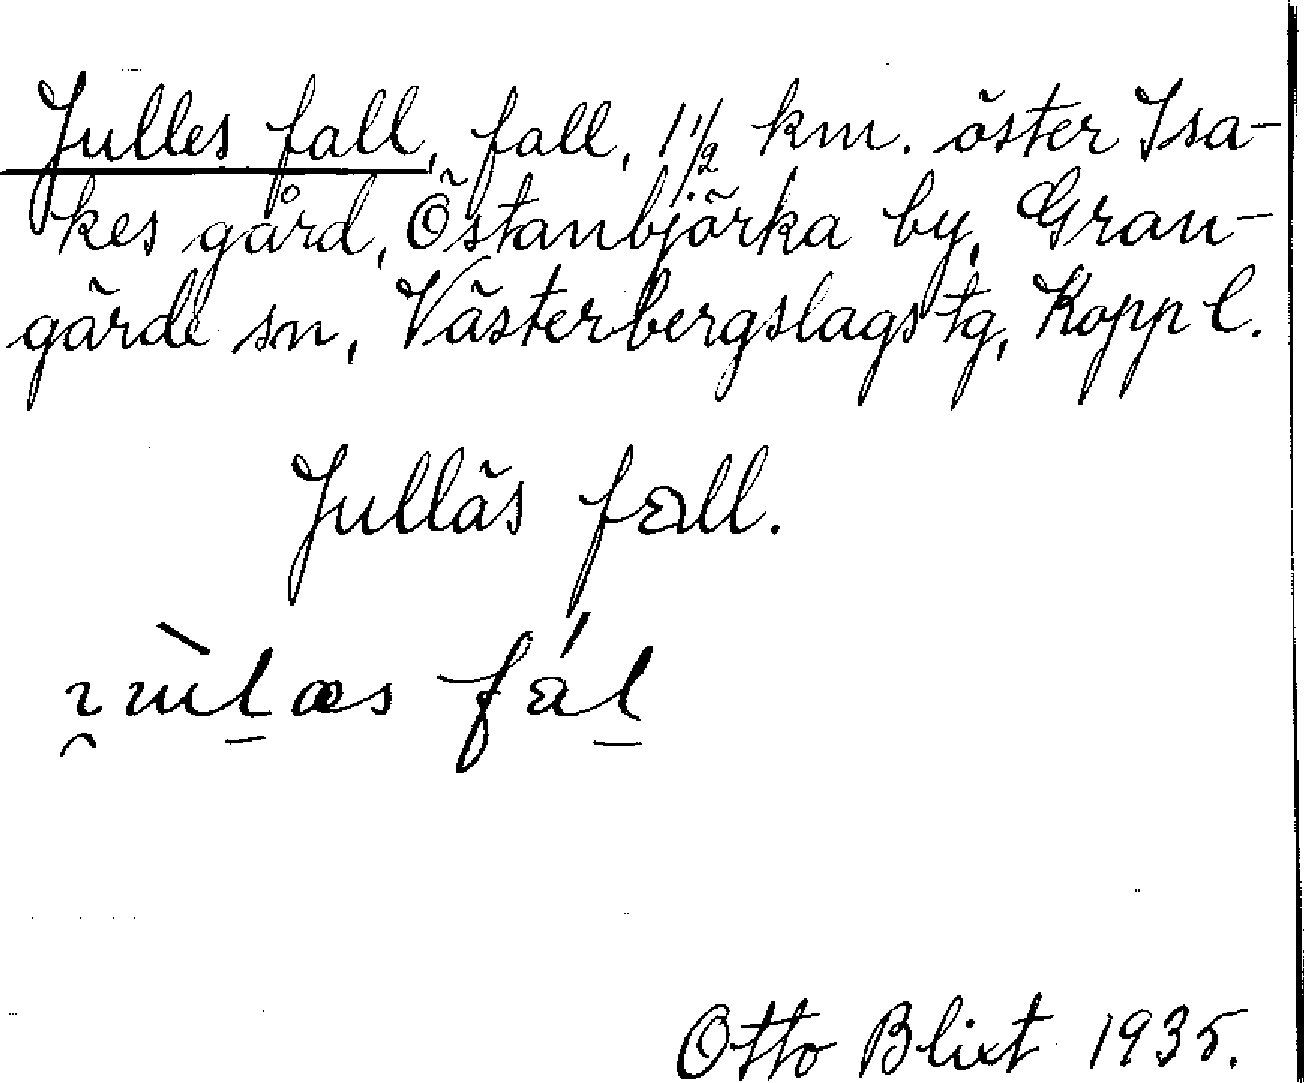 Julles fall, fall, 1 1/2 km. öster Isa-
kes gård, Östanbjörka by, Gran-
gärde sn, Västerbergslags tg, Kopp l.
Julläs fall.
ı̯ùl̠æs fál̠
Otto Blixt 1935.